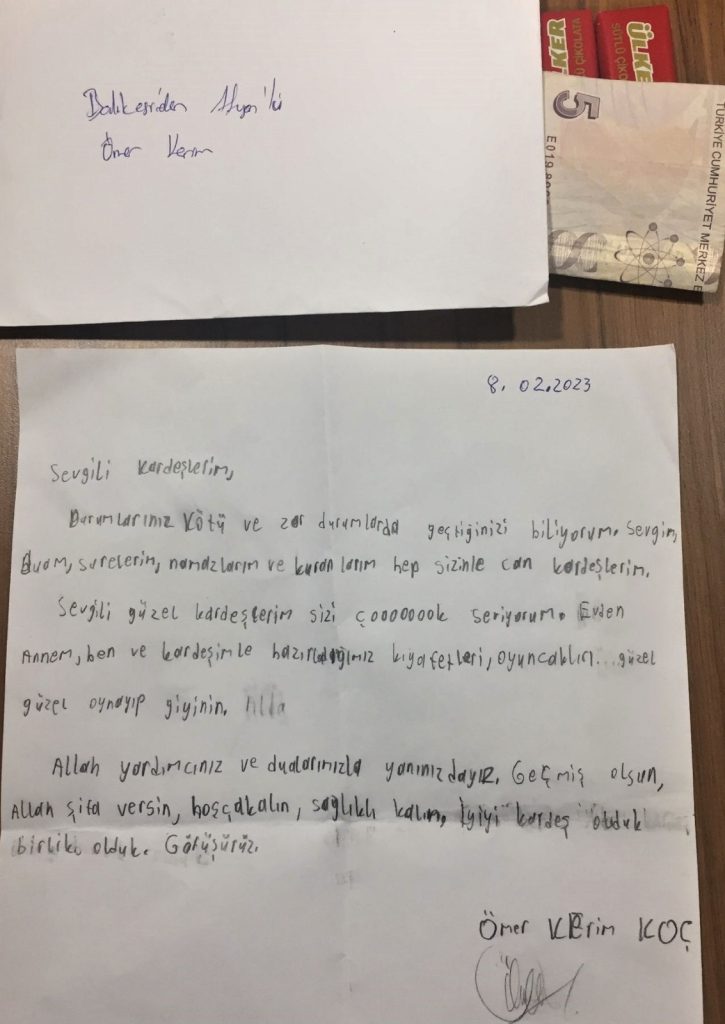 Balıkesir'den Afyon'lu
Ömer Kerim
ÜLKER
SÜTLÜ ÇİKO
LKER
Ü ÇİKOLATA
5
E019
TÜRKİYE CUMHURİYET MERKEZ B
8. 02.2023
Sevgili Kardeşlerim,
Durumlarınız kötü ve zor durumlarda geçtiğinizi biliyorum. Sevgim,
Duam, surelerim, namazlarım ve kuran larım hep sizinle can kardeşlerim.
Sevgili güzel kardeşlerim sizi çoooooook seviyorum. Evden
Annem, ben ve kardeşimle hazırladığımız kıyafetleri, oyuncakları... güzel
güzel oynayıp giyinin. Alla
Allah yardımcınız ve dualarımızla yanınızdayız. Geçmiş olsun,
Allah şifa versin, hoşçakalın, sağlıklı kalın, İyiyi kardeş olduk
birlik olduk. Görüşürüz.
Ömer KErim KOÇ